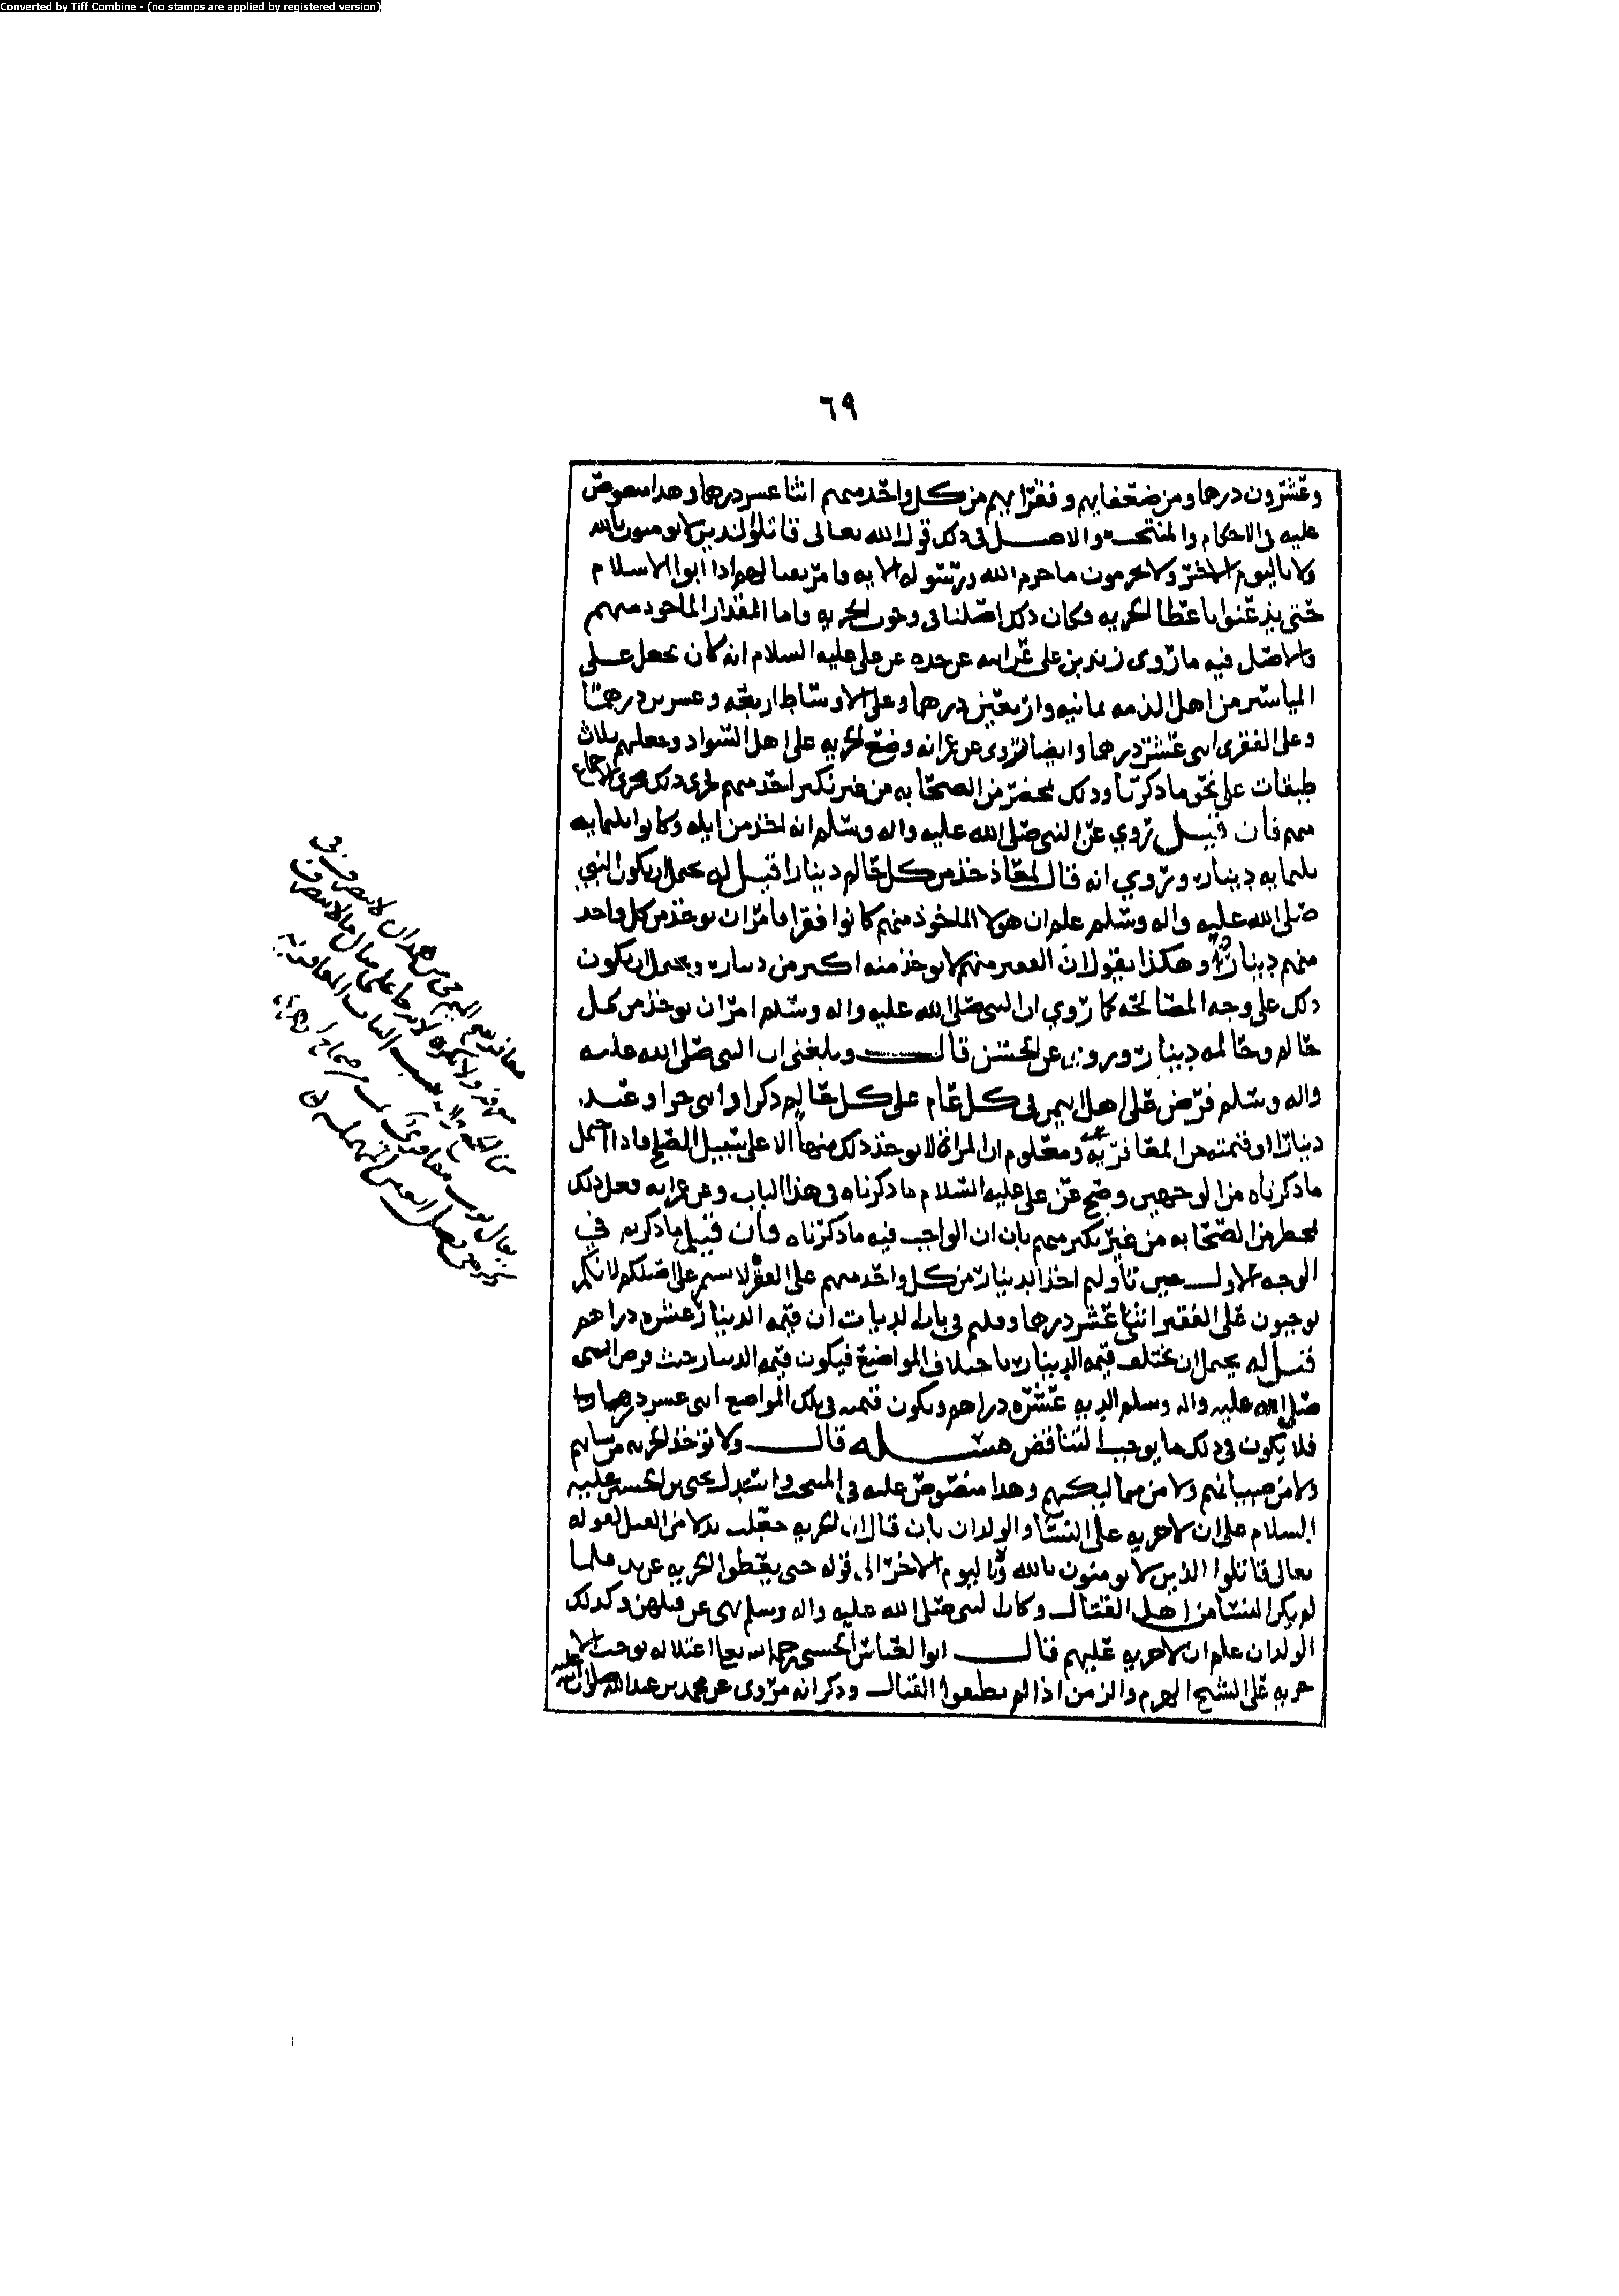 Converted by Tiff Combine - (no stamps are applied by registered version)
٦٩
وعشرون درهما ومن ضعفايهم وفقرايهم من كل واحد منهم اثنا عشر درهما وهذا منصوص
عليه في الاحكام والمنتخب والاصل في ذلك قول الله تعالى قاتلوا الذين لا يومنون بالله
ولا باليوم الاخر ولا يحرمون ما حرم الله ورسوله الايه فامر بقتالهم اذا ابوا الاسلام
حتى يذعنوا باعطا الجزيه فكان ذلك اصلنا في وجوب الجزيه واما المقدار الماخوذ منهم
فالاصل فيه ما روى زيد بن علي عن ابيه عن جده عن علي عليه السلام انه كان يجعل على
المياسير من اهل الذمه ثمانيه واربعين درهما وعلى الاوساط اربعه وعشرين درهما
وعلى الفقرى اثنى عشر درهما وايضا روى عن عمر انه وضع الجزيه على اهل السواد وجعلهم ثلاث
طبقات على نحو ما ذكرنا وذلك بمحضر من الصحابه من غير نكير احد منهم فجرى ذلك مجرى الاجماع
منهم فان قيل روي عن النبي صلى الله عليه واله وسلم انه اخذ من ايله وكانوا ثلثمايه
ثلثمايه دينار وروي انه قال لمعاذ خذ من كل حالم دينارا قيل له يحتمل ان يكون النبي
صلى الله عليه واله وسلم علم ان هولا الماخوذ منهم كانوا فقرا فامر ان يوخذ من كل واحد
منهم دينار وهكذا نقول لان الفقير منهم لا يوخذ منه اكثر من دينار ويحتمل ان يكون
ذلك على وجه المصالحه كما روي ان النبي صلى الله عليه واله وسلم امر ان يوخذ من كل
حالم وحالمه دينار وروى عن الحسن قال وبلغني ان النبي صلى الله عليه
واله وسلم فرض على اهل اليمن في كل عام على كل حالم ذكر او انثى حر او عبد
دينارا او قيمته من المعافريه ومعلوم ان المراة لا يوخذ ذلك منها الا على سبيل الصلح فاذا احتمل
ما ذكرناه من الوجهين وصح عن علي عليه السلام ما ذكرناه في هذا الباب وعن عمر انه فعل ذلك
بمحضر من الصحابه من غير نكير منهم بان ان الواجب فيه ما ذكرناه فان قيل ما ذكرتم في
الوجه الاول حين تاولتم اخذ الدينار من كل واحد منهم على الفقر لا يستمر على اصلكم لانكم
توجبون على الفقير اثنى عشر درهما وقلتم في باب الديات ان قيمه الدينار عشره دراهم
قيل له يحتمل ان تختلف قيمه الدينار باختلاف المواضع فيكون قيمه الدينار حيث فرض النبي
صلى الله عليه واله وسلم الديه عشره دراهم ويكون قيمته في تلك المواضع اثنى عشر درهما
فلا يكون في ذلك ما يوجب التناقض مسئله قال ولا توخذ الجزيه من نسايهم
ولا من صبيانهم ولا من مماليكهم وهذا منصوص عليه في المنتخب واستدل يحيى بن الحسين عليه
السلام على ان لا جزيه على النسا والولدان بان قال ان الجزيه جعلت بدلا من القتل لقوله
تعالى قاتلوا الذين لا يومنون بالله ولا باليوم الاخر الى قوله حتى يعطوا الجزيه عن يد فلما
لم يكن النسا من اهل القتال وكان النبي صلى الله عليه واله وسلم نهى عن قتلهن وكذلك
الولدان علم ان لا جزيه عليهم قال ابو العباس الحسني رحمه الله تعالى اعتلاله يوجب الا
جزيه على الشيخ الهرم والزمن اذا لم يطيقوا القتال وذكر انه مروى عن محمد بن عبد الله صلوات الله عليه
معافر حي من همدان لا ينصرف في
معرفة ولا نكرة لانه جا على مثال ما لا ينصرف
من الجمع واليهم تنسب الثياب المعافرية
يقال ثوب معافري من صحاح الجوهري